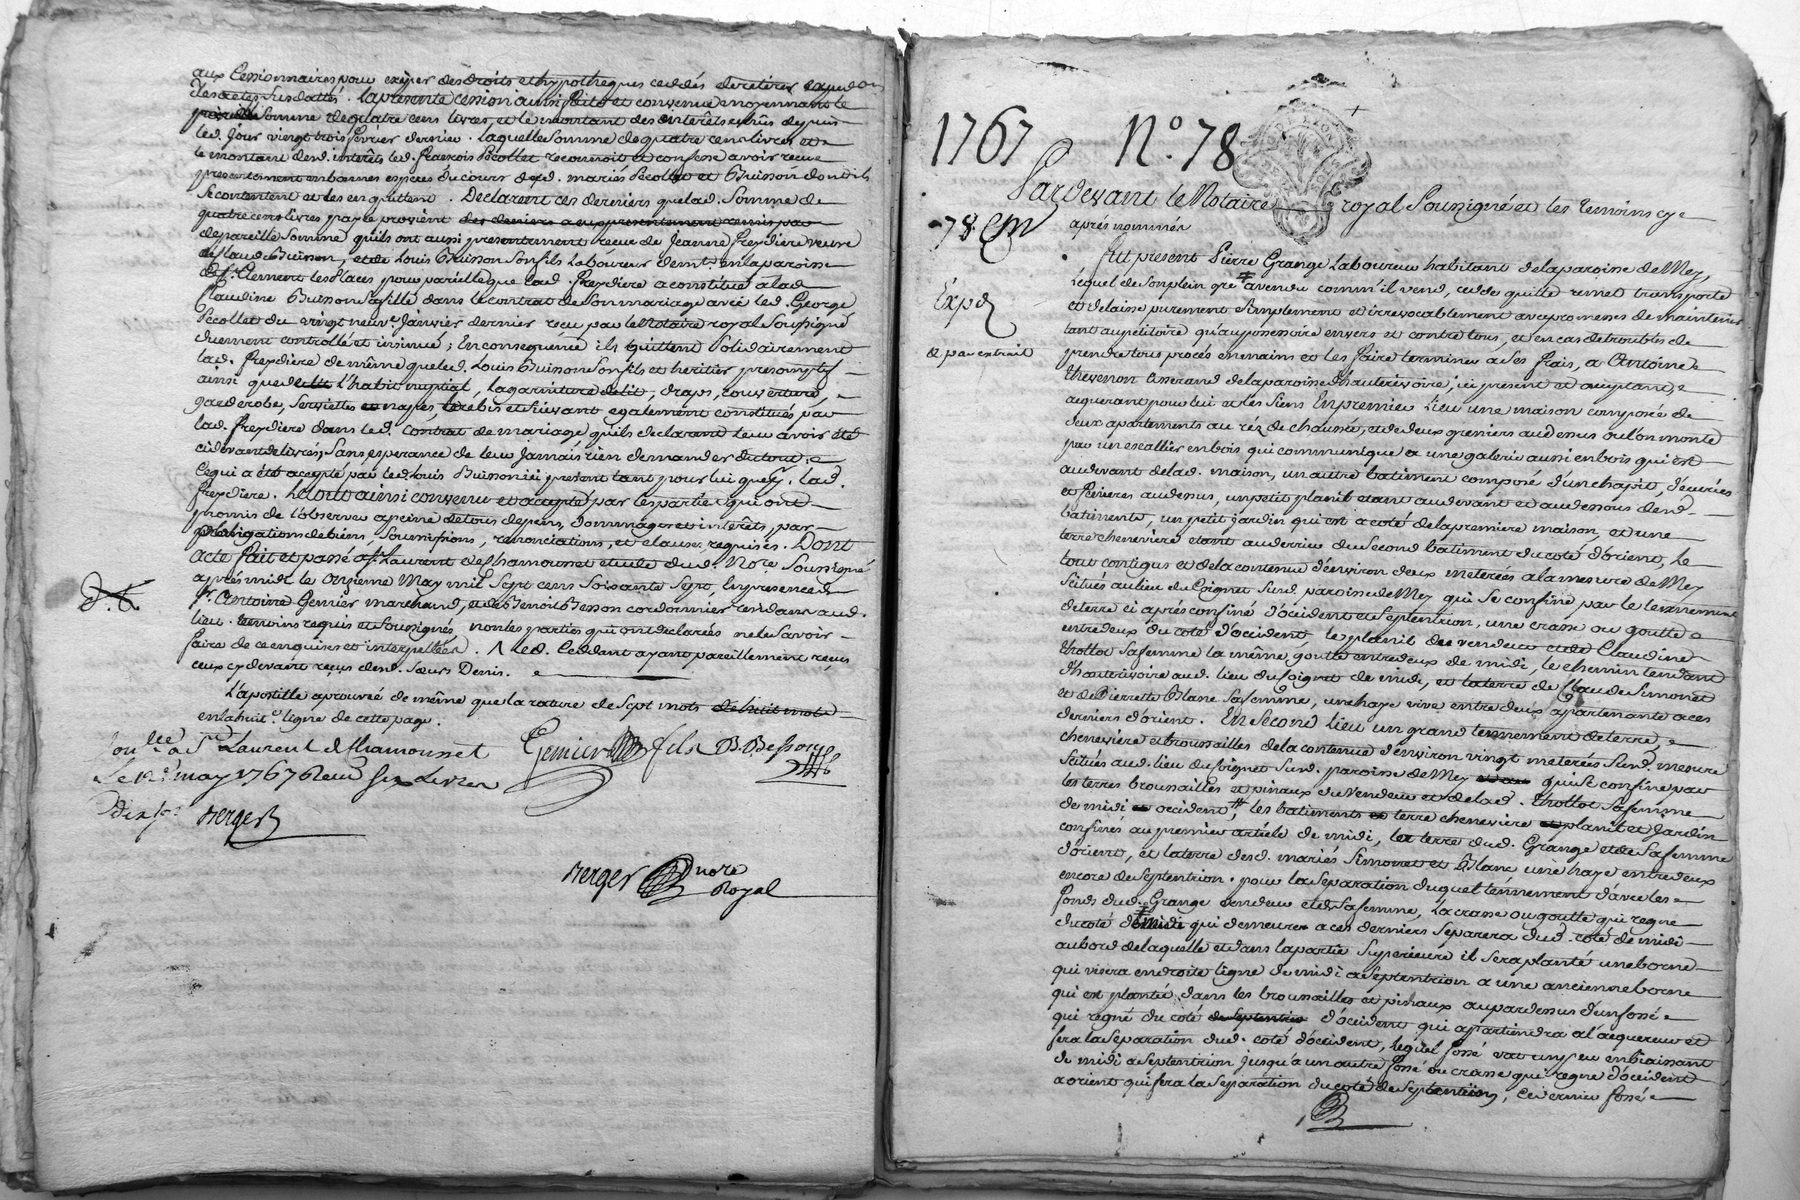 aux Cessionnaires pour exiger des droits et hypotheques ceddés de retirer
des actes susdattés. la presente cession aussi faite et convenue moyennant le
somme de quatre cens livres, et le montant des interêts echûs depuis
led. jour vingt trois fevrier dernier. laquelle somme de quatre cens livres et
le montant desd. interêts led. françois Pecollet reconnoit et confesse avoir reçue
presentement en bonnes especes du cours desd. mariés Pecollet et Buisson dont ils
se contentent et les en quittent. Declarant ces derniers que lad. somme de
quatre cens livres payée provient des deniers
de pareille somme qu'ils ont aussi presentement reçue de Jeanne Freydiere veuve
de Claude Buisson, et de Louis Buisson son fils Laboureur demt. en la paroisse
de St. Clement les Places pour pareille que lad. Freydiere a constitué a lad.
Claudine Buisson sa fille dans le contrat de son mariage avec led. George
Pecollet du vingt neuve. Janvier dernier reçu par le Notaire royal soussigné
duement controllé et insinué; En consequence ils quittent solidairement
lad. Freydiere de même que led. Louis Buisson son fils et heritier presomptif
ainsi que de l'habit nuptial, la garniture de lit, draps, couverture,
garderobe, serviettes et napes, brebis et suivant egalement constitués par
lad. Freydiere dans led. Contrat de mariage qu'ils declarent leur avoir été
cidevant delivrés, sans esperance de leur jamais rien demander du tout.
Ce qui a été accepté par led. Louis Buisson ici présent tant pour lui que pr. lad.
Freydiere. Le tout ainsi convenu et accepté par les parties qui ont
promis de l'observer a peine de tous depens, dommages et interêts, par
obligations de biens, soumissions, renonciations, et clauses requises. Dont
acte fait et passé a St. Laurent de Chamousset etude dud. Nore. soussigné
après midi le onzieme May mil sept cens soixante sept, En presence de
sr. Antoine Genier marchand, et de Benoit Besson cordonnier residans aud.
lieu. temoins requis et soussignés, non les parties qui ont declarées ne le savoir
faire de ce enquises et interpellées. led. Ceddant ayant pareillement reçus
ceux cy devant reçus desd. sœurs Denis.
L'apostille aprouvée de même que la rature de sept mots de huit mots
en la huite. ligne de cette page.
Conllé a St Laurent de Chamousset
Le 12e may 1767 Reçu six Livres
dix s.
Berger
Genier fils B. Besson
Berger nore
Royal
1767 No. 78
Pardevant le Notaire royal soussigné et les temoins cy
après nommés
78. Cm
Expd
& par extrait
Fut present Pierre Grange Laboureur habitant de la paroisse de Meys,
Lequel de son plein gré a vendu comm'il vend, cedde quitte remet transporte
et delaisse purement simplement et irrevocablement avec promesses de maintenir
tant au petitoire qu'au possessoire envers et contre tous, et en cas de troubles de
prendre tous procés en mains et les faire terminer a ses frais, a Antoine
Thevenon de la paroisse d'hauterivoire, ici present et acceptant,
acquerant pour lui et les siens En premier Lieu une maison composée de
deux apartements au réz de chaussée, et de deux greniers audessus où l'on monte
par un escallier en bois qui communique a une galerie aussi en bois qui est
audevant de lad. maison, un autre batiment composé d'un chapit, d'écuries
et fenieres audessus, un petit planil etant audevant et audessous desd.
batiments, un petit jardin qui est a coté de la premiere maison, et une
terre cheneviere etant au derrier du second batiment du coté d'orient, le
tout contigus et de la contenue d'environ deux meterées a la mesure de Meys
scitués au lieu du Soignet susd. paroisse de Meys qui se confine par le tennement
de terre ci après confiné d'occident et septentrion, une crasse ou goutte
entredeux du coté d'occident, le planil des vendeur et de Claudine
Thollot sa femme la même goutte entredeux de midi, le chemin tendant
d'hauterivoire aud. lieu du Soignet de midi, et la terre de Claude Simonet
et de Pierrette Blanc sa femme, une haye vive entre deux apartenante a ces
derniers d'orient. En second Lieu un grand tennement de terre,
cheneviere et broussailles de la contenue d'environ vingt meterées susd. mesure
scitués aud. lieu du Soignet susd. paroisse de Meys qui se confine par
les terres broussailles et pinaux du vendeur et de lad. Thollot sa femme
de midi occident, les batiments terre cheneviere planil et jardin
confinés au premier article de midi, la terre dud. Grange et de sa femme
d'orient, et la terre desd. mariés Simonet et Blanc une haye entredeux
encore de septentrion. pour la separation duquel tennement d'avec les
fonds dud. Grange vendeur et de sa femme, la crasse ou goutte qui regne
du coté de midi qui demeurer a ces derniers separera dud. coté de midi
au bord de laquelle et dans la partie superieure il sera planté une borne
qui visera en droite ligne de midi a septentrion a une ancienne borne
qui est plantée dans les broussailles et pinaux au pardessus d'un fossé
qui regne du coté de septentrion d'occident qui apartiendra a l'acquereur et
fera la separation dud. coté d'occident, lequel fossé vat un peu en biaissant
de midi a septentrion jusqu'à un autre fossé ou crasse qui regne d'occident
a orient qui fera la separation du coté de septentrion, ce dernier fossé